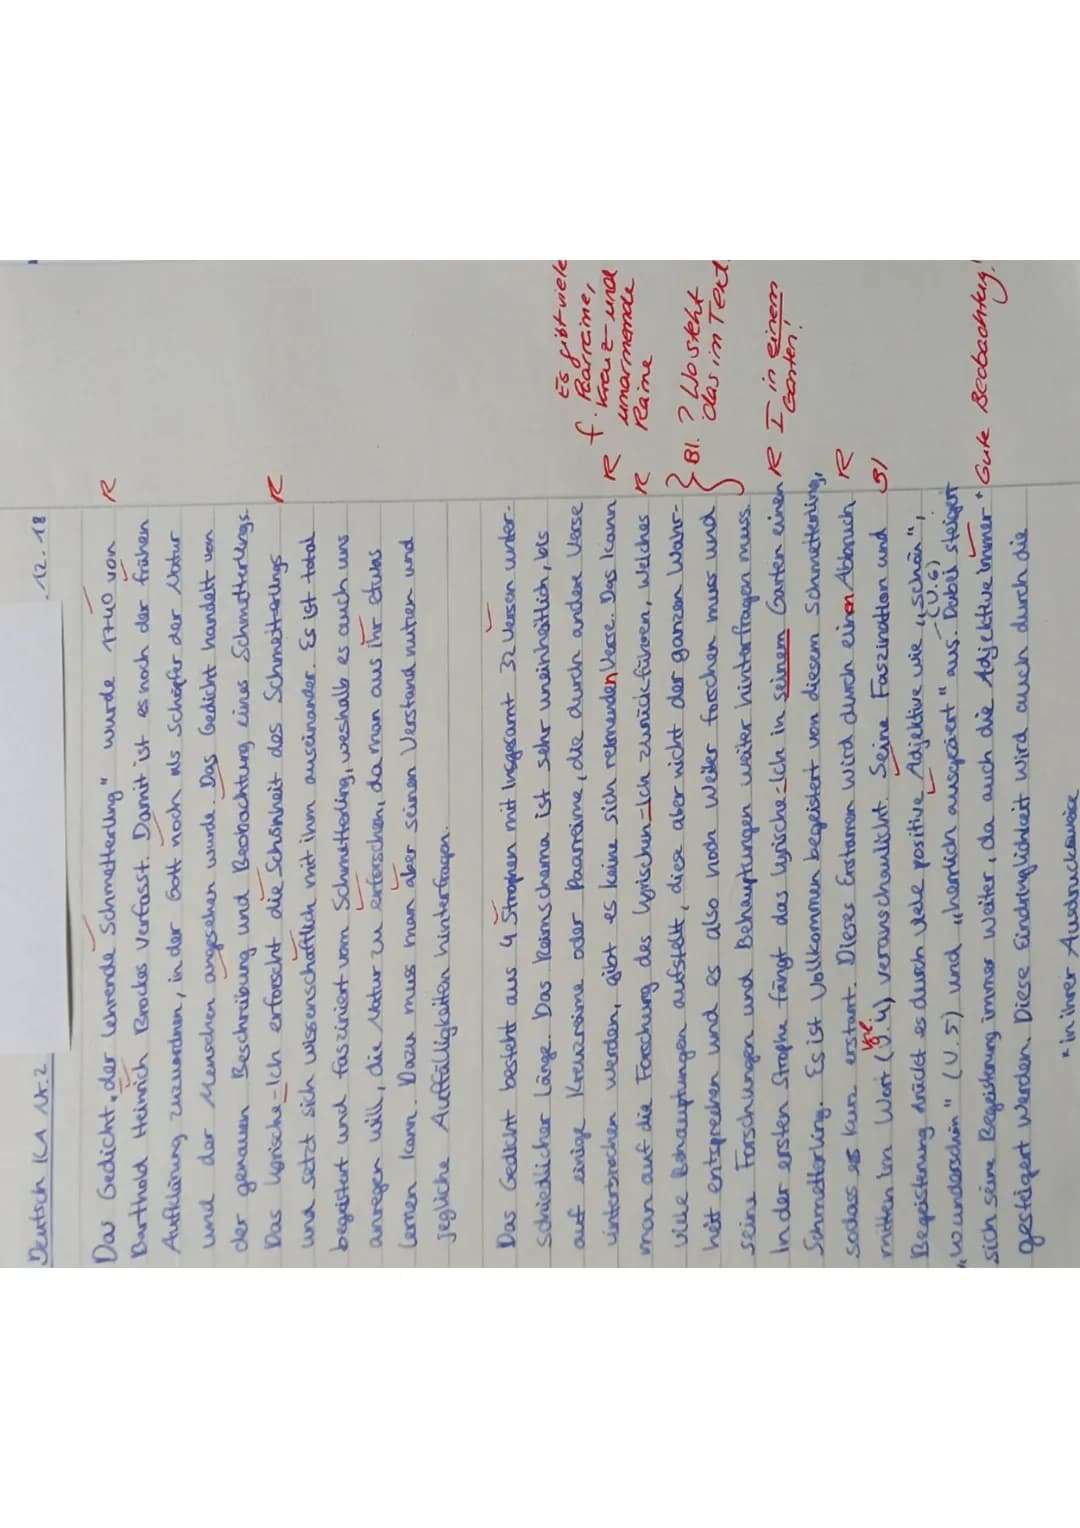 Deutsch KA Nr.2 12.18
Das Gedicht „der lehrende Schmetterling" wurde 1740 von R
Barthold Heinrich Brockes verfasst. Damit ist es noch der frühen
Aufklärung zuzuordnen, in der Gott noch als Schöpfer der Natur
und der Menschen angesehen wurde. Das Gedicht handelt von
der genauen Beschreibung und Beobachtung eines Schmetterlings.
Das lyrische-Ich erforscht die Schönheit des Schmetterlings R
und setzt sich wissenschaftlich mit ihm auseinander. Es ist total
begeistert und fasziniert vom Schmetterling, weshalb es auch uns
anregen will, die Natur zu erforschen, da man aus ihr etwas
lernen kann. Dazu muss man aber seinen Verstand nutzen und
jegliche Auffälligkeiten hinterfragen.
Das Gedicht besteht aus 4 Strophen mit insgesamt 32 Versen unter-
schiedlicher Länge. Das Reimschema ist sehr uneinheitlich, bis
auf einige Kreuzreime oder Paarreime, die durch andere Verse
unterbrochen werden, gibt es keine sich reimenden Verse. Das kann R
f. Es gibt viele
Paarreime,
Kreuz- und
umarmende
Reime
man auf die Forschung des lyrischen-Ich zurückführen, welches R
viele Behauptungen aufstellt, diese aber nicht der ganzen Wahr-
heit entsprechen und es also noch weiter forschen muss und
seine Forschungen und Behauptungen weiter hinterfragen muss.
Bl. ? Wo steht
das im Text
In der ersten Strophe fängt das lyrische-Ich in seinem Garten einen R I in einem
Garten!
Schmetterling. Es ist vollkommen begeistert von diesem Schmetterling,
sodass es kurz erstarrt. Dieses Erstarren wird durch einen Abbruch R
mitten im Wort (vgl. V. 4) veranschaulicht. Seine Faszination und
Begeisterung drückt es durch viele positive Adjektive wie „schön",
„wunderschön" (V. 5) und „herrlich ausgeziert" (V. 6) aus. Dabei steigert
sich seine Begeisterung immer weiter, da auch die Adjektive immer * Gute Beobachtung!
gesteigert werden. Diese Eindringlichkeit wird auch durch die
* in ihrer Ausdrucksweise